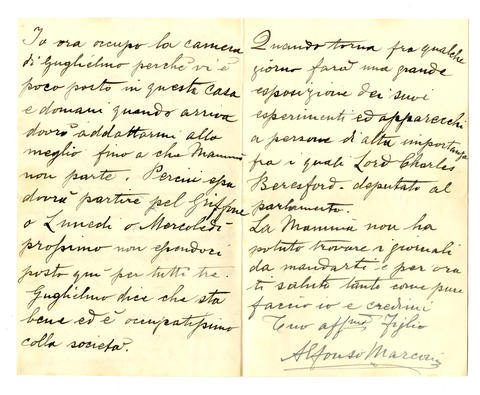 Io ora occupo la camera
di Guglielmo perchè vi è
poco posto in questa casa
e domani quando arriva
dovrò addattarmi alla
meglio fino a che Mammà
non parte. Perciò essa
dovrà partire pel Griffone
o Lunedì o Mercoledì
prossimo non essendoci
posto quì per tutti tre.
Guglielmo dice che sta
bene ed è occupatissimo
colla società.
Quando torna fra qualche
giorno farà una grande
esposizione dei suoi
esperimenti ed apparecchi
a persone di alta importanza
fra i quali Lord Charles
Beresford - deputato al
parlamento.
La Mammà non ha
potuto trovare i giornali
da mandarti e per ora
ti saluto tanto come pure
faccio io e credimi
Tuo affmo Figlio
Alfonso Marconi